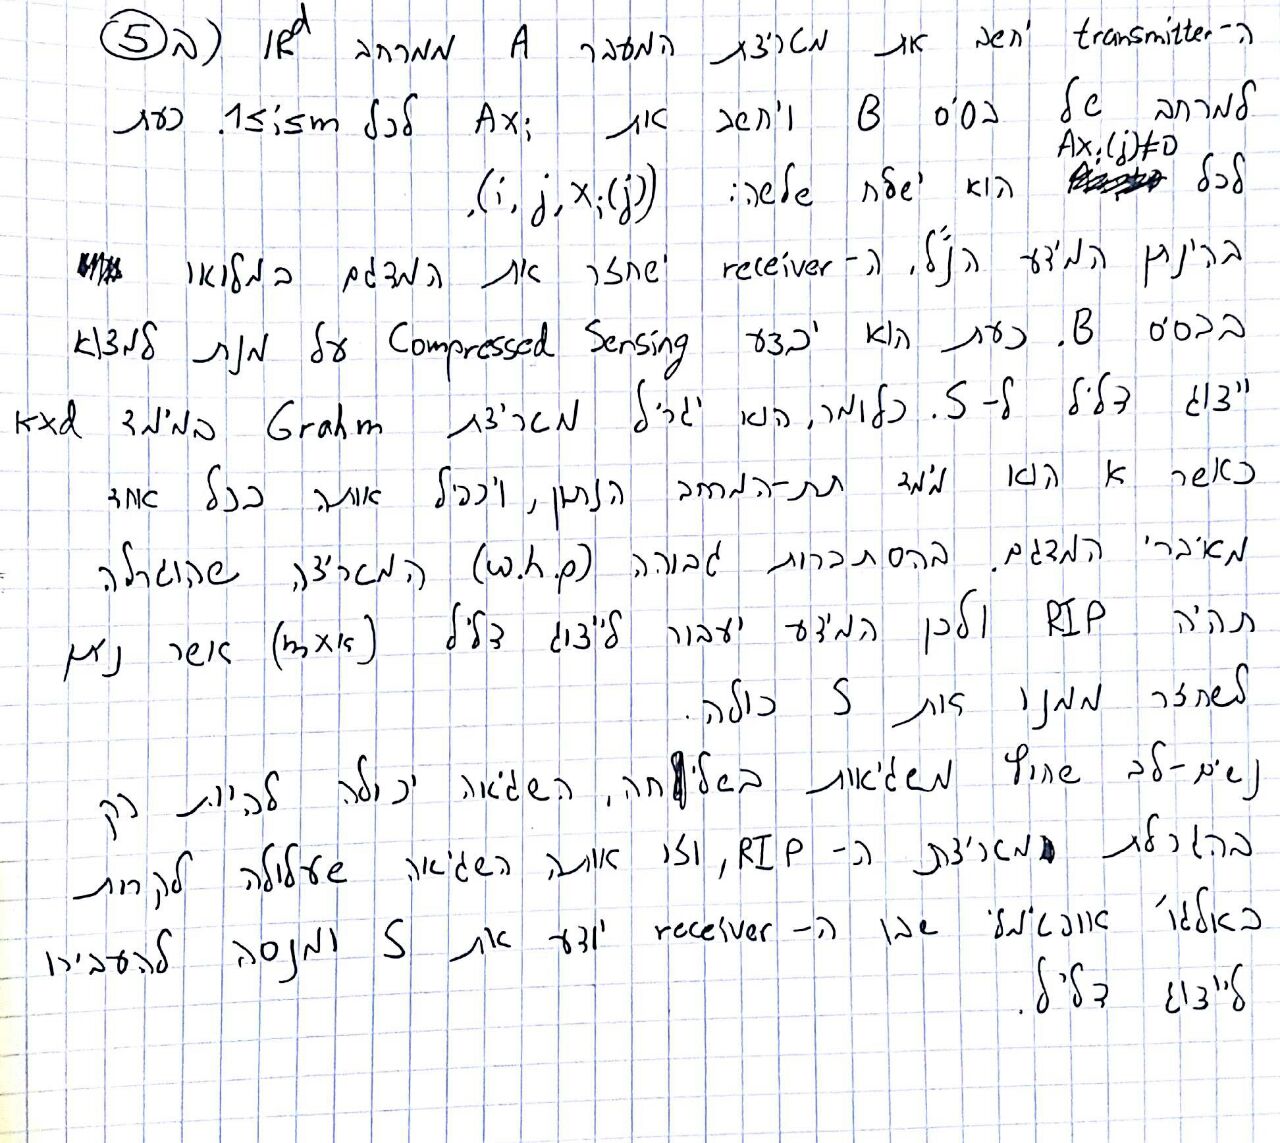 5) ב) ה-transmitter יחשב את מטריצת המעבר A ממרחב ℝ^d
למרחב של בסיס B ויחשב את Ax_i לכל 1≤i≤m. כעת
לכל Ax_i(j)≠0 הוא ישלח שלשה: (i, j, x_i(j)).
בהינתן המידע הנ"ל, ה-receiver ישחזר את המדגם במלואו
בבסיס B. כעת הוא יבצע Compressed Sensing על מנת למצוא
ייצוג דליל ל-S. כלומר, הוא יגריל מטריצת Grahm במימד k×d
כאשר k הוא מימד תת-המרחב הנתון, ויכפיל אותה בכל אחד
מאיברי המדגם. בהסתברות גבוהה (w.h.p) המטריצה שהוגרלה
תהיה RIP ולכן המידע יעבור לייצוג דליל (m×k) אשר ניתן
לשחזר ממנו את S כולה.
נשים-לב שחוץ משגיאות בשליחה, השגיאה יכולה להיות רק
בהגרלת מטריצת ה-RIP, וזו אותה השגיאה שעלולה לקרות
באלגו' אופטימלי שבו ה-receiver יודע את S ומנסה להעבירו
לייצוג דליל.